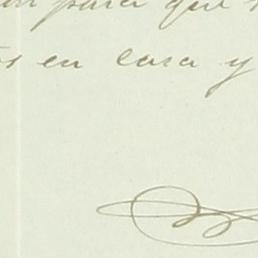 para que
en casa y